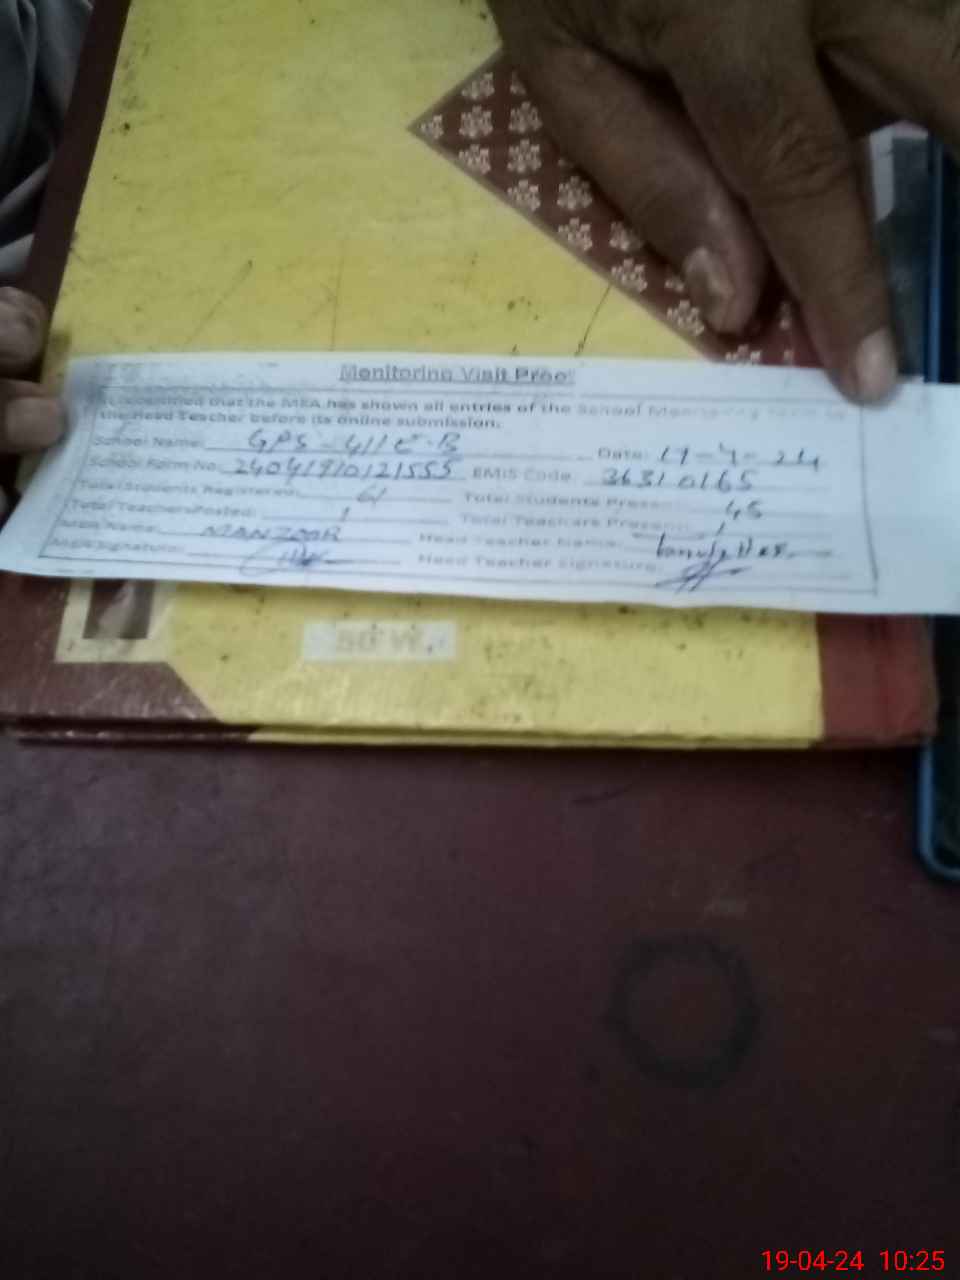 Monitoring Visit Proof
certified that the MEA has shown all entries of the School Monitoring
the Head Teacher before its online submission.
School Name: GPS - 411 E-B Date: 19-4-24
School Form No: 24041910121555 EMIS Code: 36310165
Total Students Registered: 61 Total Students Present: 45
Total Teachers Posted: 1 Total Teachers Present: 1
MEA Name: MANZOOR Head Teacher Name:
MEA Signature: Head Teacher Signature:
19-04-24 10:25